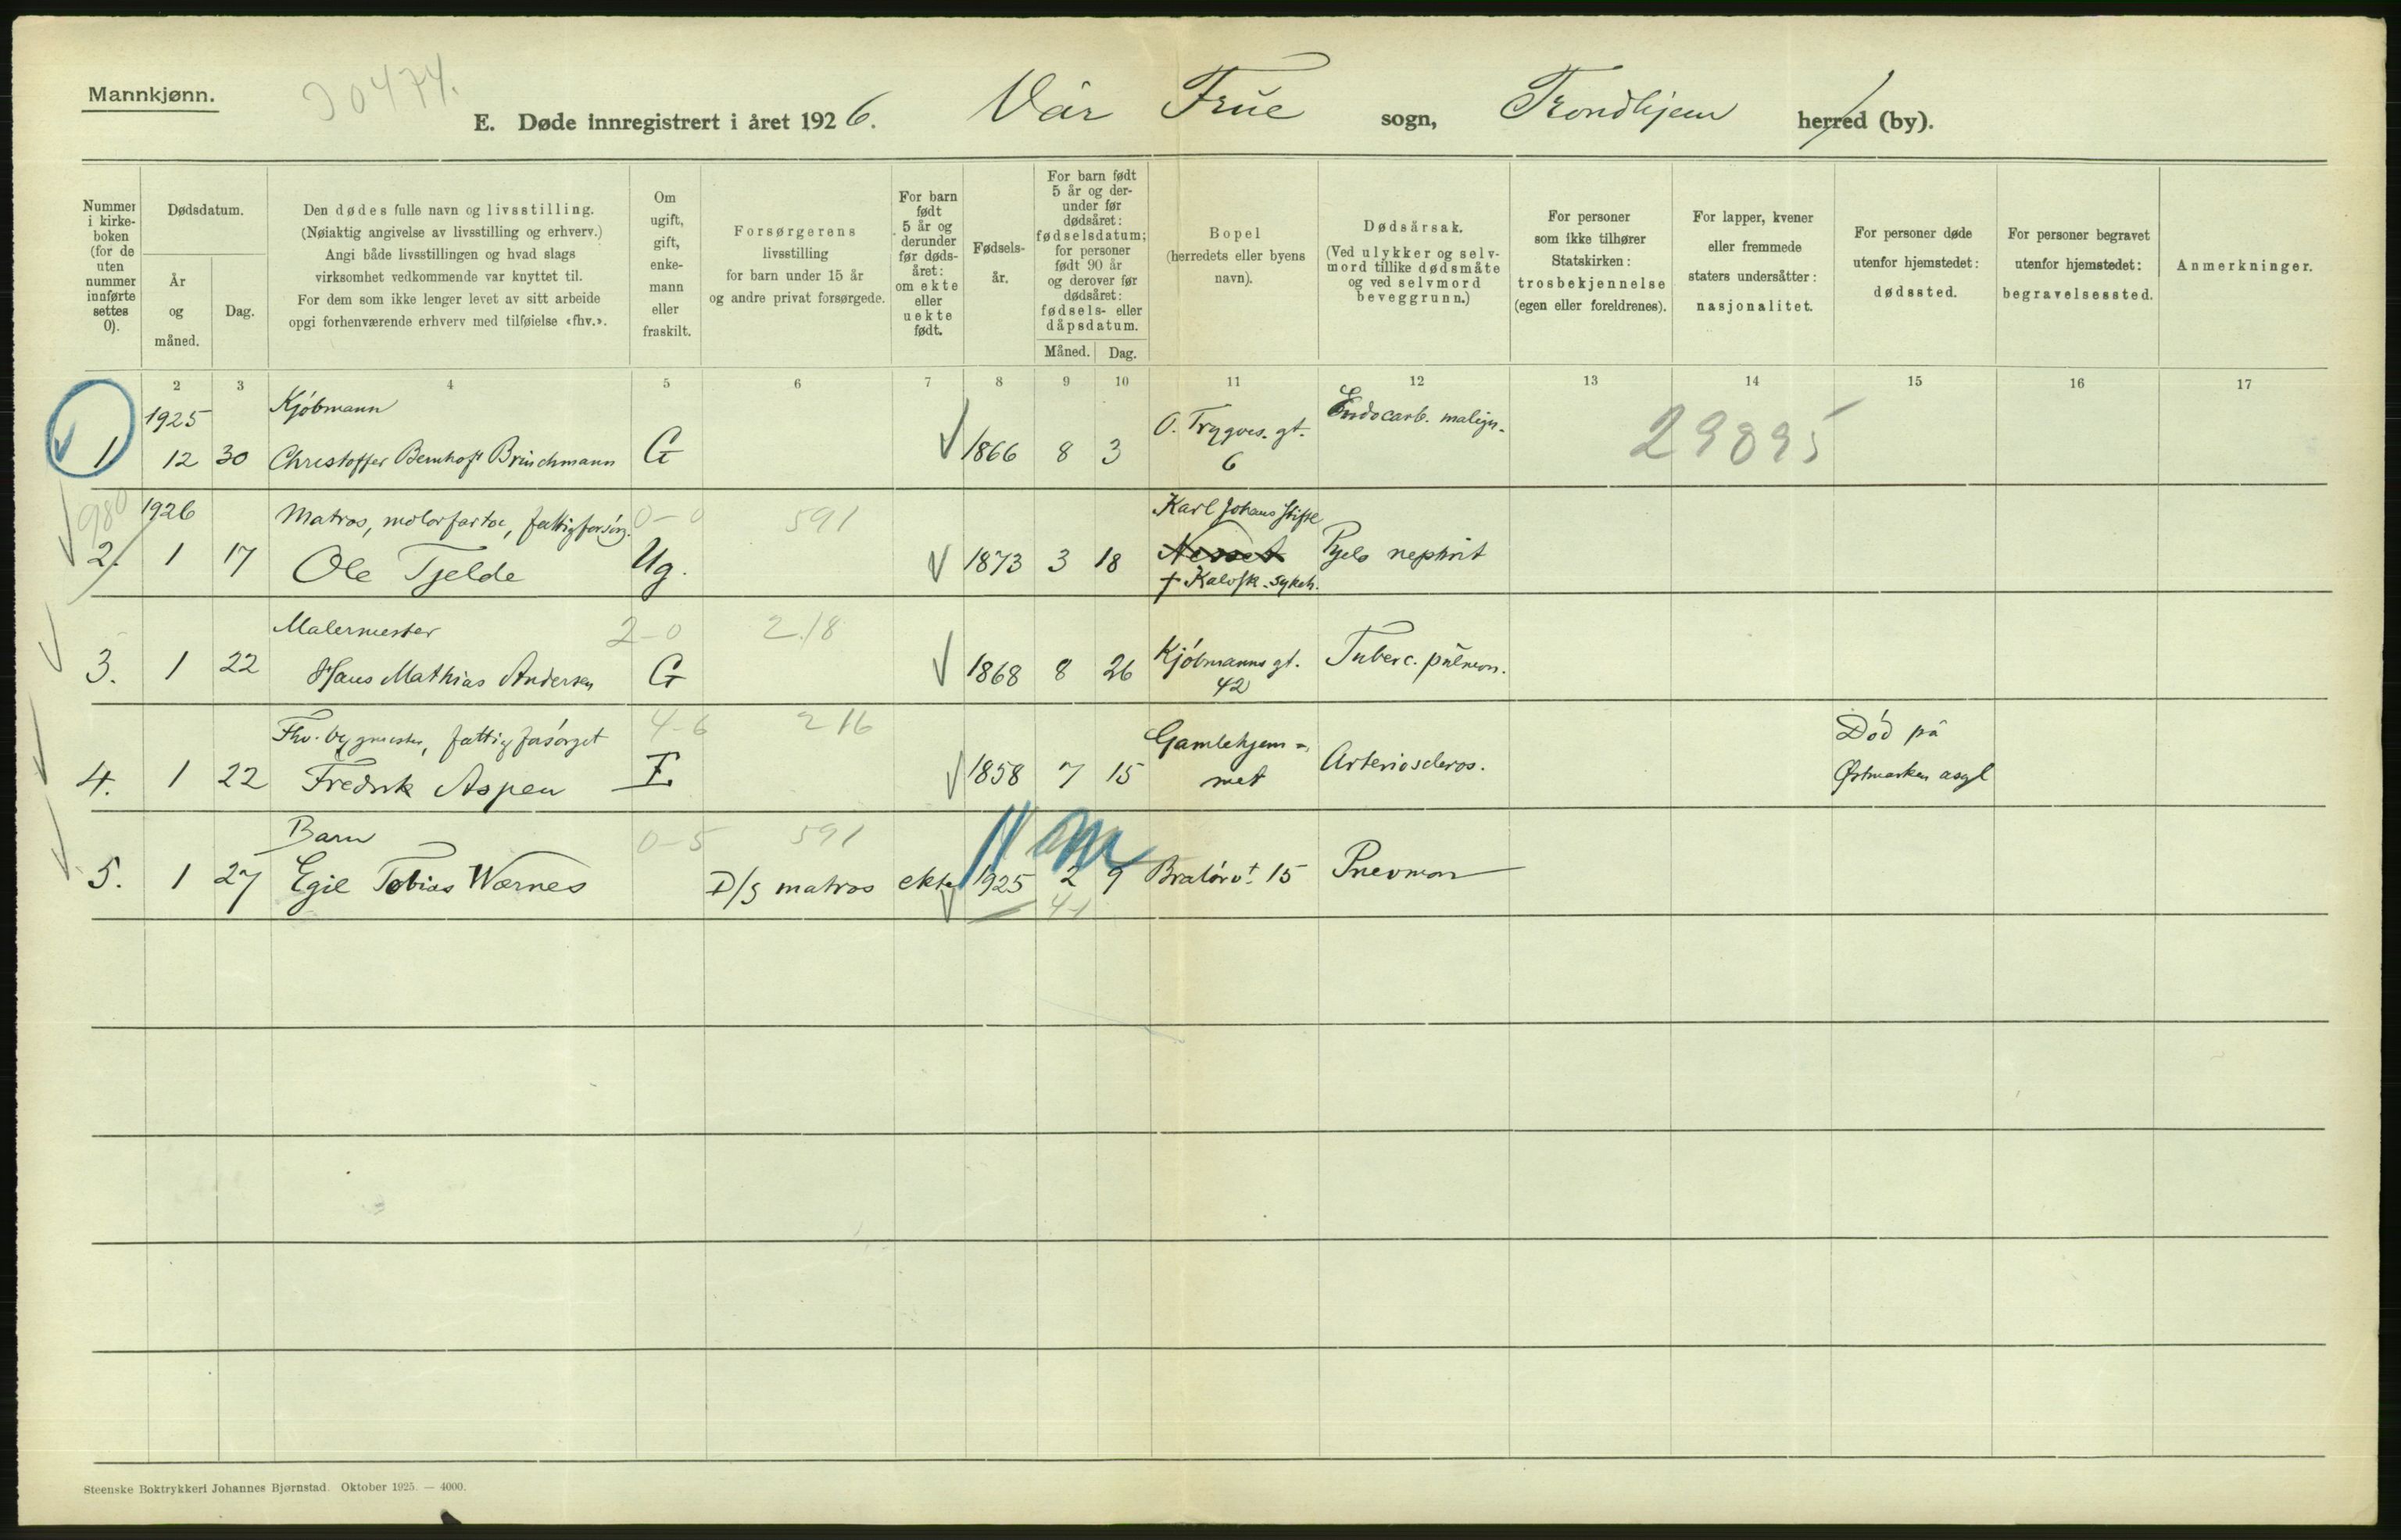 Mannkjønn.
30474.
E. Døde innregistrert i året 1926. Vår Frue sogn, Trondhjem herred (by).
Nummer i kirke-boken (for de uten nummer innførte settes 0).
Dødsdatum.
År og måned.
Dag.
Den dødes fulle navn og livsstilling.
(Nøiaktig angivelse av livsstilling og erhverv.)
Angi både livsstillingen og hvad slags
virksomhet vedkommende var knyttet til.
For dem som ikke lenger levet av sitt arbeide
opgi forhenværende erhverv med tilføielse «fhv.».
Om ugift, gift, enke-mann eller fraskilt.
Forsørgerens
livsstilling
for barn under 15 år
og andre privat forsørgede.
For barn født 5 år og derunder før døds-året: om ekte eller uekte født.
Fødsels-år.
For barn født 5 år og der-under før dødsåret: fødselsdatum; for personer født 90 år og derover før dødsåret: fødsels- eller dåpsdatum.
Måned. Dag.
Bopel
(herredets eller byens
navn).
Dødsårsak.
(Ved ulykker og selv-
mord tillike dødsmåte
og ved selvmord
beveggrunn.)
For personer
som ikke tilhører
Statskirken:
trosbekjennelse
(egen eller foreldrenes).
For lapper, kvener
eller fremmede
staters undersåtter:
nasjonalitet.
For personer døde
utenfor hjemstedet:
dødssted.
For personer begravet
utenfor hjemstedet:
begravelsessted.
Anmerkninger.
2 3 4 5 6 7 8 9 10 11 12 13 14 15 16 17
1925 Kjöbmann
1 12 30 Christoffer Bernhoft Brinchmann G 1866 8 3 O. Trygves. gt. 6 Endocard. malign. 29895
980 1926 Matros, motorfartøi, fattigforsörg. 0-0 591 Karl Johans stift.
2. 1 17 Ole Tjelde Ug. 1873 3 18 Pyelo nephrit
† Kalvsk. sykeh.
Malermester 2-0 218
3. 1 22 Hans Mathias Andersen G 1868 8 26 Kjöbmanns gt. 42 Tuberc. pulmon.
Fhv. bygmester, fattigforsörget 4-6 216
4. 1 22 Fredrik Aspen E 1858 7 15 Gamlehjem=met Arterioscleros. Död på Østmarken asyl
Barn 0-5 591 11 m
5. 1 27 Egil Tobias Wærnes D/S matros ekte 1925 2 9 Bratörvt 15 Pnevmon
4-1
Steenske Boktrykkeri Johannes Bjørnstad. Oktober 1925. — 4000.